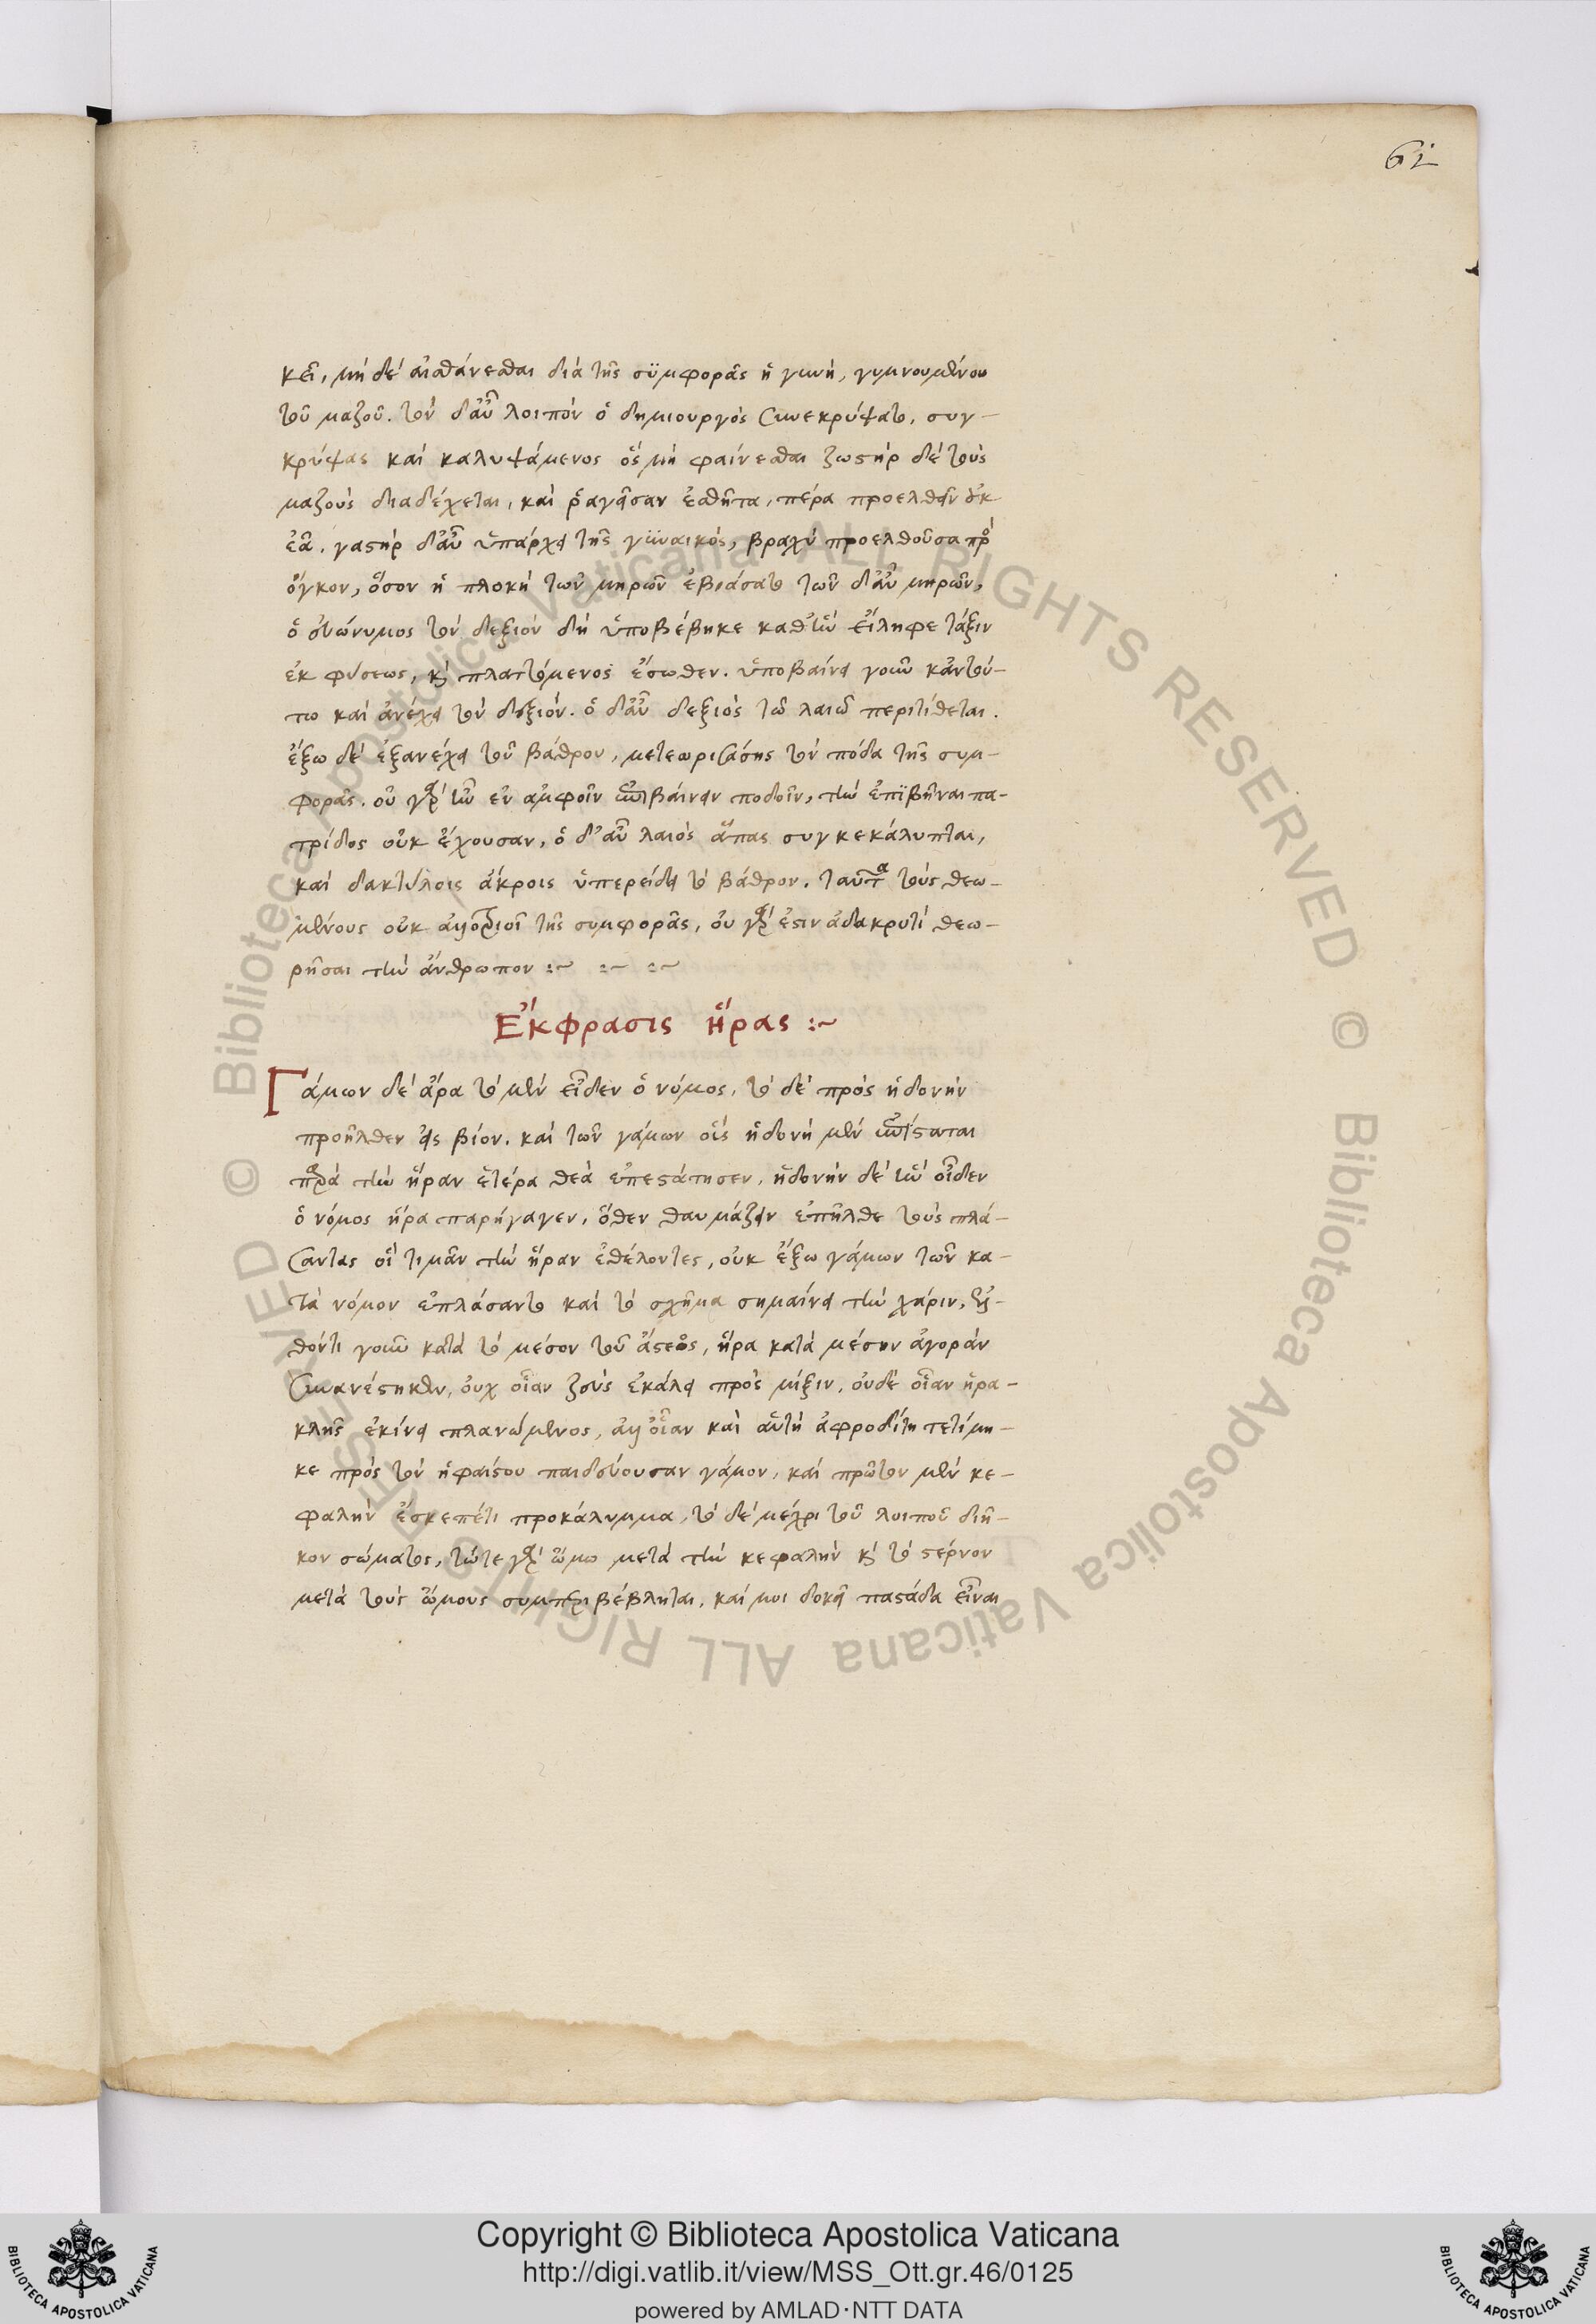 62
κεῖ, μὴ δὲ αἰσθάνεσθαι διὰ τῆς συμφορᾶς ἡ γυνή, γυμνουμένου
τοῦ μαζοῦ. τὸν δ' αὖ λοιπὸν ὁ δημιουργὸς συνεκρύψατο, συγ-
κρύψας καὶ καλυψάμενος ὃς μὴ φαίνεσθαι ζωστὴρ δὲ τοὺς
μαζοὺς διαδέχεται, καὶ ῥαγεῖσαν ἐσθῆτα, πέρα προελθεῖν οὐκ
ἐᾷ. γαστὴρ δ' αὖ ὑπάρχει τῆς γυναικός, βραχὺ προελθοῦσα πρὸς
ὄγκον, ὅσον ἡ πλοκὴ τῶν μηρῶν ἐβιάσατο τῶν δ' αὖ μηρῶν,
ὁ εὐώνυμος τὸν δεξιὸν δὴ ὑποβέβηκε καθ' ἣν εἴληφε τάξιν
ἐκ φύσεως, καὶ πλαττόμενος ἔσωθεν. ὑποβαίνει γοῦν κἀν τού-
τω καὶ ἀνέχει τὸν δεξιόν. ὁ δ' αὖ δεξιὸς τῷ λαιῷ περιτίθεται.
ἔξω δὲ ἐξανέχει τοῦ βάθρου, μετεωρισάσης τὸν πόδα τῆς συμ-
φορᾶς. οὐ γὰρ ἦν ἐν ἀμφοῖν ἐπιβαίνειν ποδοῖν, τὴν ἐπιβῆναι πα-
τρίδος οὐκ ἔχουσαν, ὁ δ' αὖ λαιὸς ἅπας συγκεκάλυπται,
καὶ δακτύλοις ἄκροις ὑπερείδει τὸ βάθρον. ταῦτα τοὺς θεω-
μένους οὐκ τῆς συμφορᾶς, οὐ γὰρ ἔστιν ἀδακρυτὶ θεω-
ρῆσαι τὴν ἄνθρωπον :~ :~ :~
Ἔκφρασις ἥρας :~
Γάμων δὲ ἄρα τὸ μὲν εἶδεν ὁ νόμος, τὸ δὲ πρὸς ἡδονὴν
προῆλθεν εἰς βίον. καὶ τῶν γάμων οἷς ἡδονὴ μὲν ἐπίσταται
παρὰ τὴν ἥραν ἑτέρα θεὰ ἐπεστάτησεν, ἡδονὴν δὲ ἣν οἶδεν
ὁ νόμος ἥρα παρήγαγεν, ὅθεν θαυμάζειν ἐπῆλθε τοὺς πλά-
σαντας οἳ τιμᾶν τὴν ἥραν ἐθέλοντες, οὐκ ἔξω γάμων τῶν κα-
τὰ νόμον ἐπλάσαντο καὶ τὸ σχῆμα σημαίνει τὴν χάριν, ἐλ-
θόντι γοῦν κατὰ τὸ μέσον τοῦ ἄστεως, ἥρα κατὰ μέσην ἀγορὰν
συνανέστηκεν, οὐχ οἵαν ζεὺς ἐκάλει πρὸς μίξιν, οὐδὲ οἵαν ἡρα-
κλῆς ἐκίνει πλανώμενος, ἀλλ' οἵαν καὶ αὐτὴ ἀφροδίτη τετίμη-
κε πρὸς τὸν ἡφαίστου παιδεύουσαν γάμον, καὶ πρῶτον μὲν κε-
φαλὴν ἔσκεπέ τι προκάλυμμα, τὸ δὲ μέχρι τοῦ λοιποῦ διῆ-
κον σώματος, τώ τε γὰρ ὤμω μετὰ τὴν κεφαλὴν καὶ τὸ στέρνον
μετὰ τοὺς ὤμους συμπεριβέβληται, καί μοι δοκεῖ παστάδα εἶναι
Copyright © Biblioteca Apostolica Vaticana
http://digi.vatlib.it/view/MSS_Ott.gr.46/0125
powered by AMLAD·NTT DATA